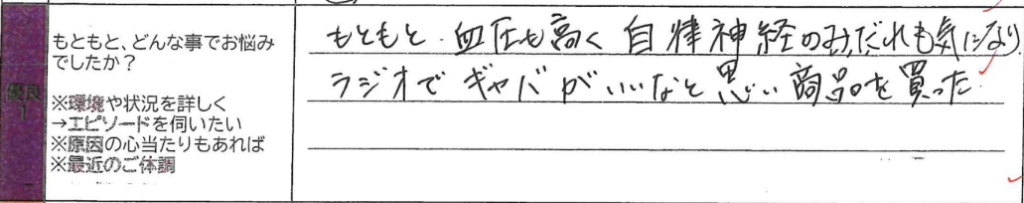 優良
1
もともと、どんな事でお悩み
でしたか？
※環境や状況を詳しく
→エピソードを伺いたい
※原因の心当たりもあれば
※最近のご体調
もともと、血圧も高く自律神経のみだれも気になり
ラジオでギャバがいいなと思い商品を買った